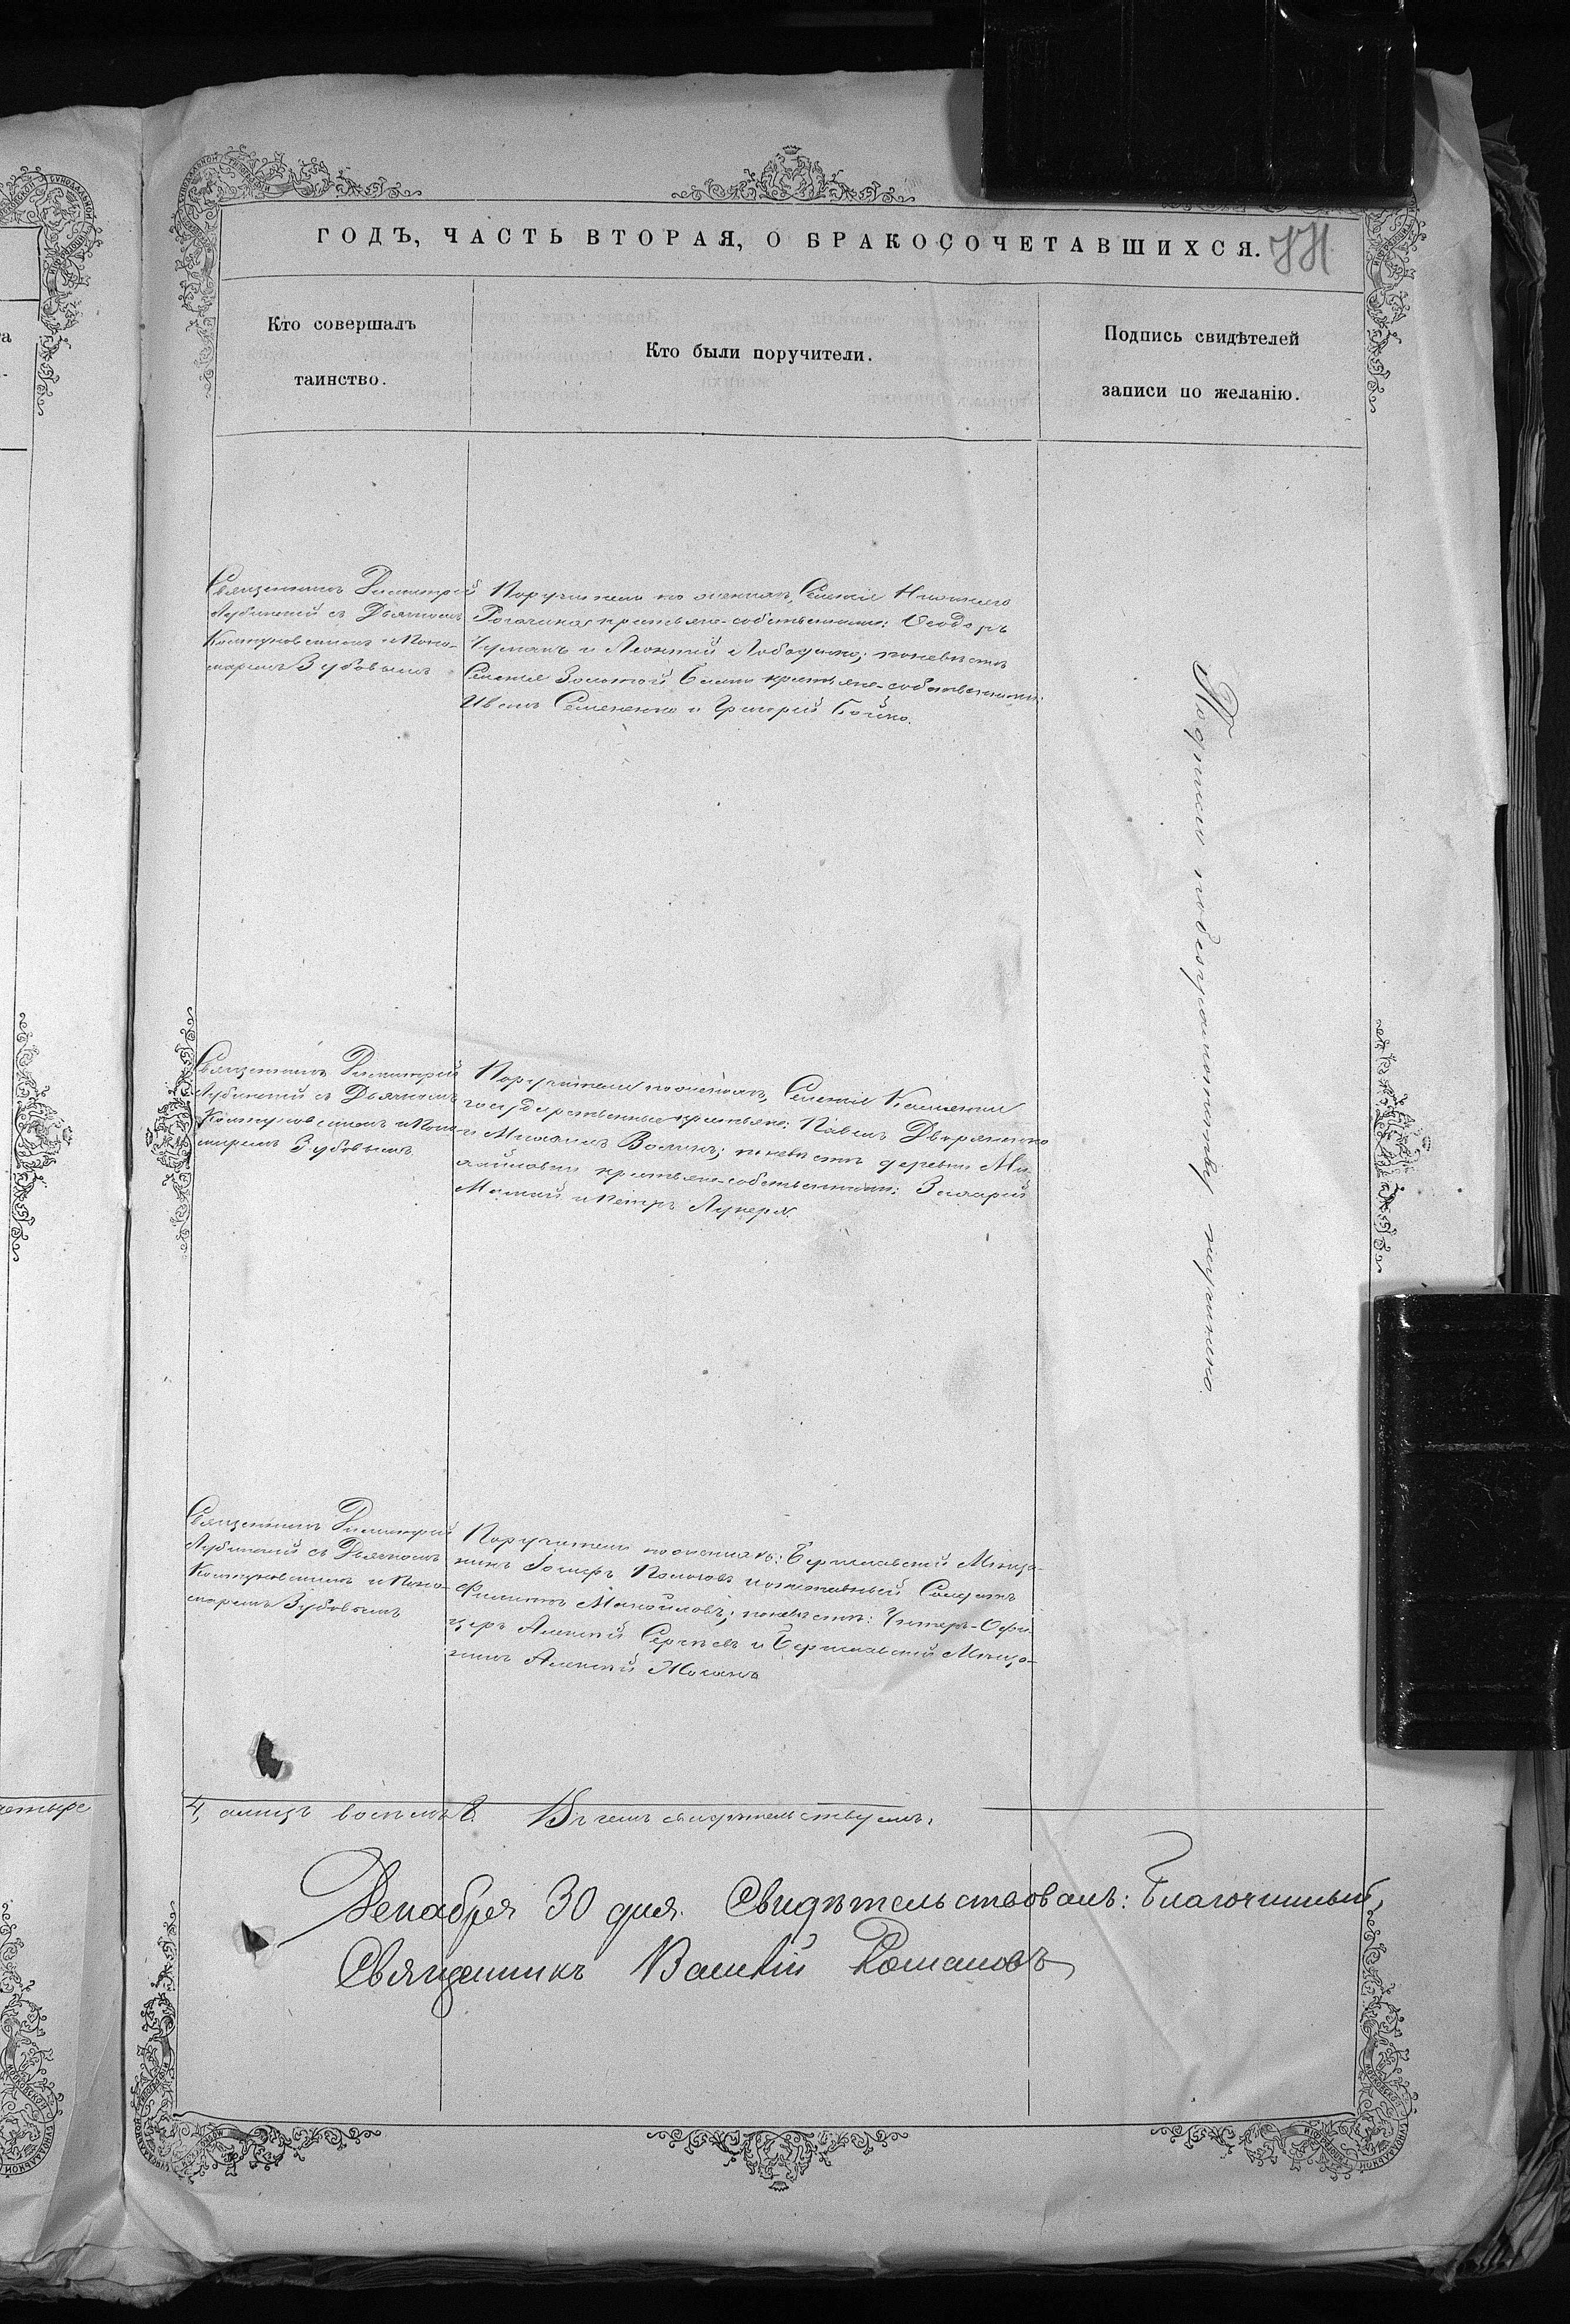 ГОДЪ, ЧАСТЬ ВТОРАЯ, О БРАКОСОЧЕТАВШИХСЯ.
Кто совершалъ
таинство.
Кто были поручители.
Подпись свидѣтелей
записи по желанію.
Священникъ Димитрій
Лубинскій съ Дьячкомъ
и Поно-
маремъ Зубовымъ
Поручители по женихѣ, Селенія Нижняго
Рогачика крестьяне-собственники: Ѳеодоръ
Чумакъ и Леонтій Лободенко; по невѣстѣ
Селенія Золотой Балки крестьяне-собственники:
Иванъ Семененко и Григорій Бойко.
Священникъ Димитрій
Лубинскій съ Дьячкомъ
и Поно-
маремъ Зубовымъ
Поручители по женихѣ, Селенія Каменки
государственные крестьяне: Павелъ Дворяненко
и Михаилъ Воликъ; по невѣстѣ деревни Ми-
хайловки крестьяне-собственники: Захарій
Мамай и Петръ
Священникъ Димитрій
Лубинскій съ Дьячкомъ
и Поно-
маремъ Зубовымъ
Поручители по женихѣ: Бериславскій Мѣща-
нинъ Іосифъ и отставный Солдатъ
Филиппъ Мануйловъ; по невѣстѣ: Унтеръ-Офи-
церъ Алексѣй Сергѣевъ и Бериславскій Мѣща-
нинъ Алексѣй
Подписи не
четыре
4, а лицъ восемь 8. Въ чемъ свидѣтельствуемъ.
Декабря 30 дня. Свидѣтельствовалъ: Благочинный,
Священникъ Василій Романовъ